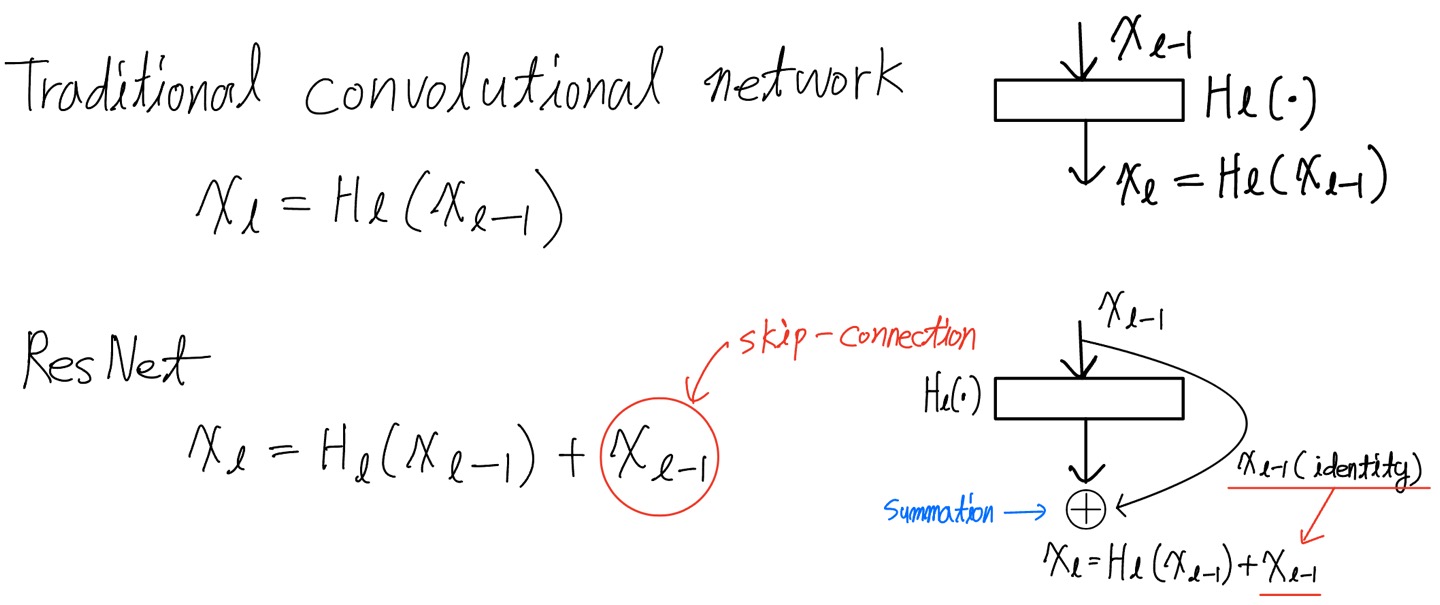 Traditional convolutional network
x_{l-1}
H_l(·)
x_l = H_l(x_{l-1})
x_l = H_l(x_{l-1})
ResNet
skip-connection
x_l = H_l(x_{l-1}) + x_{l-1}
x_{l-1}
H_l(·)
x_{l-1} (identity)
Summation → ⊕
x_l = H_l(x_{l-1}) + x_{l-1}